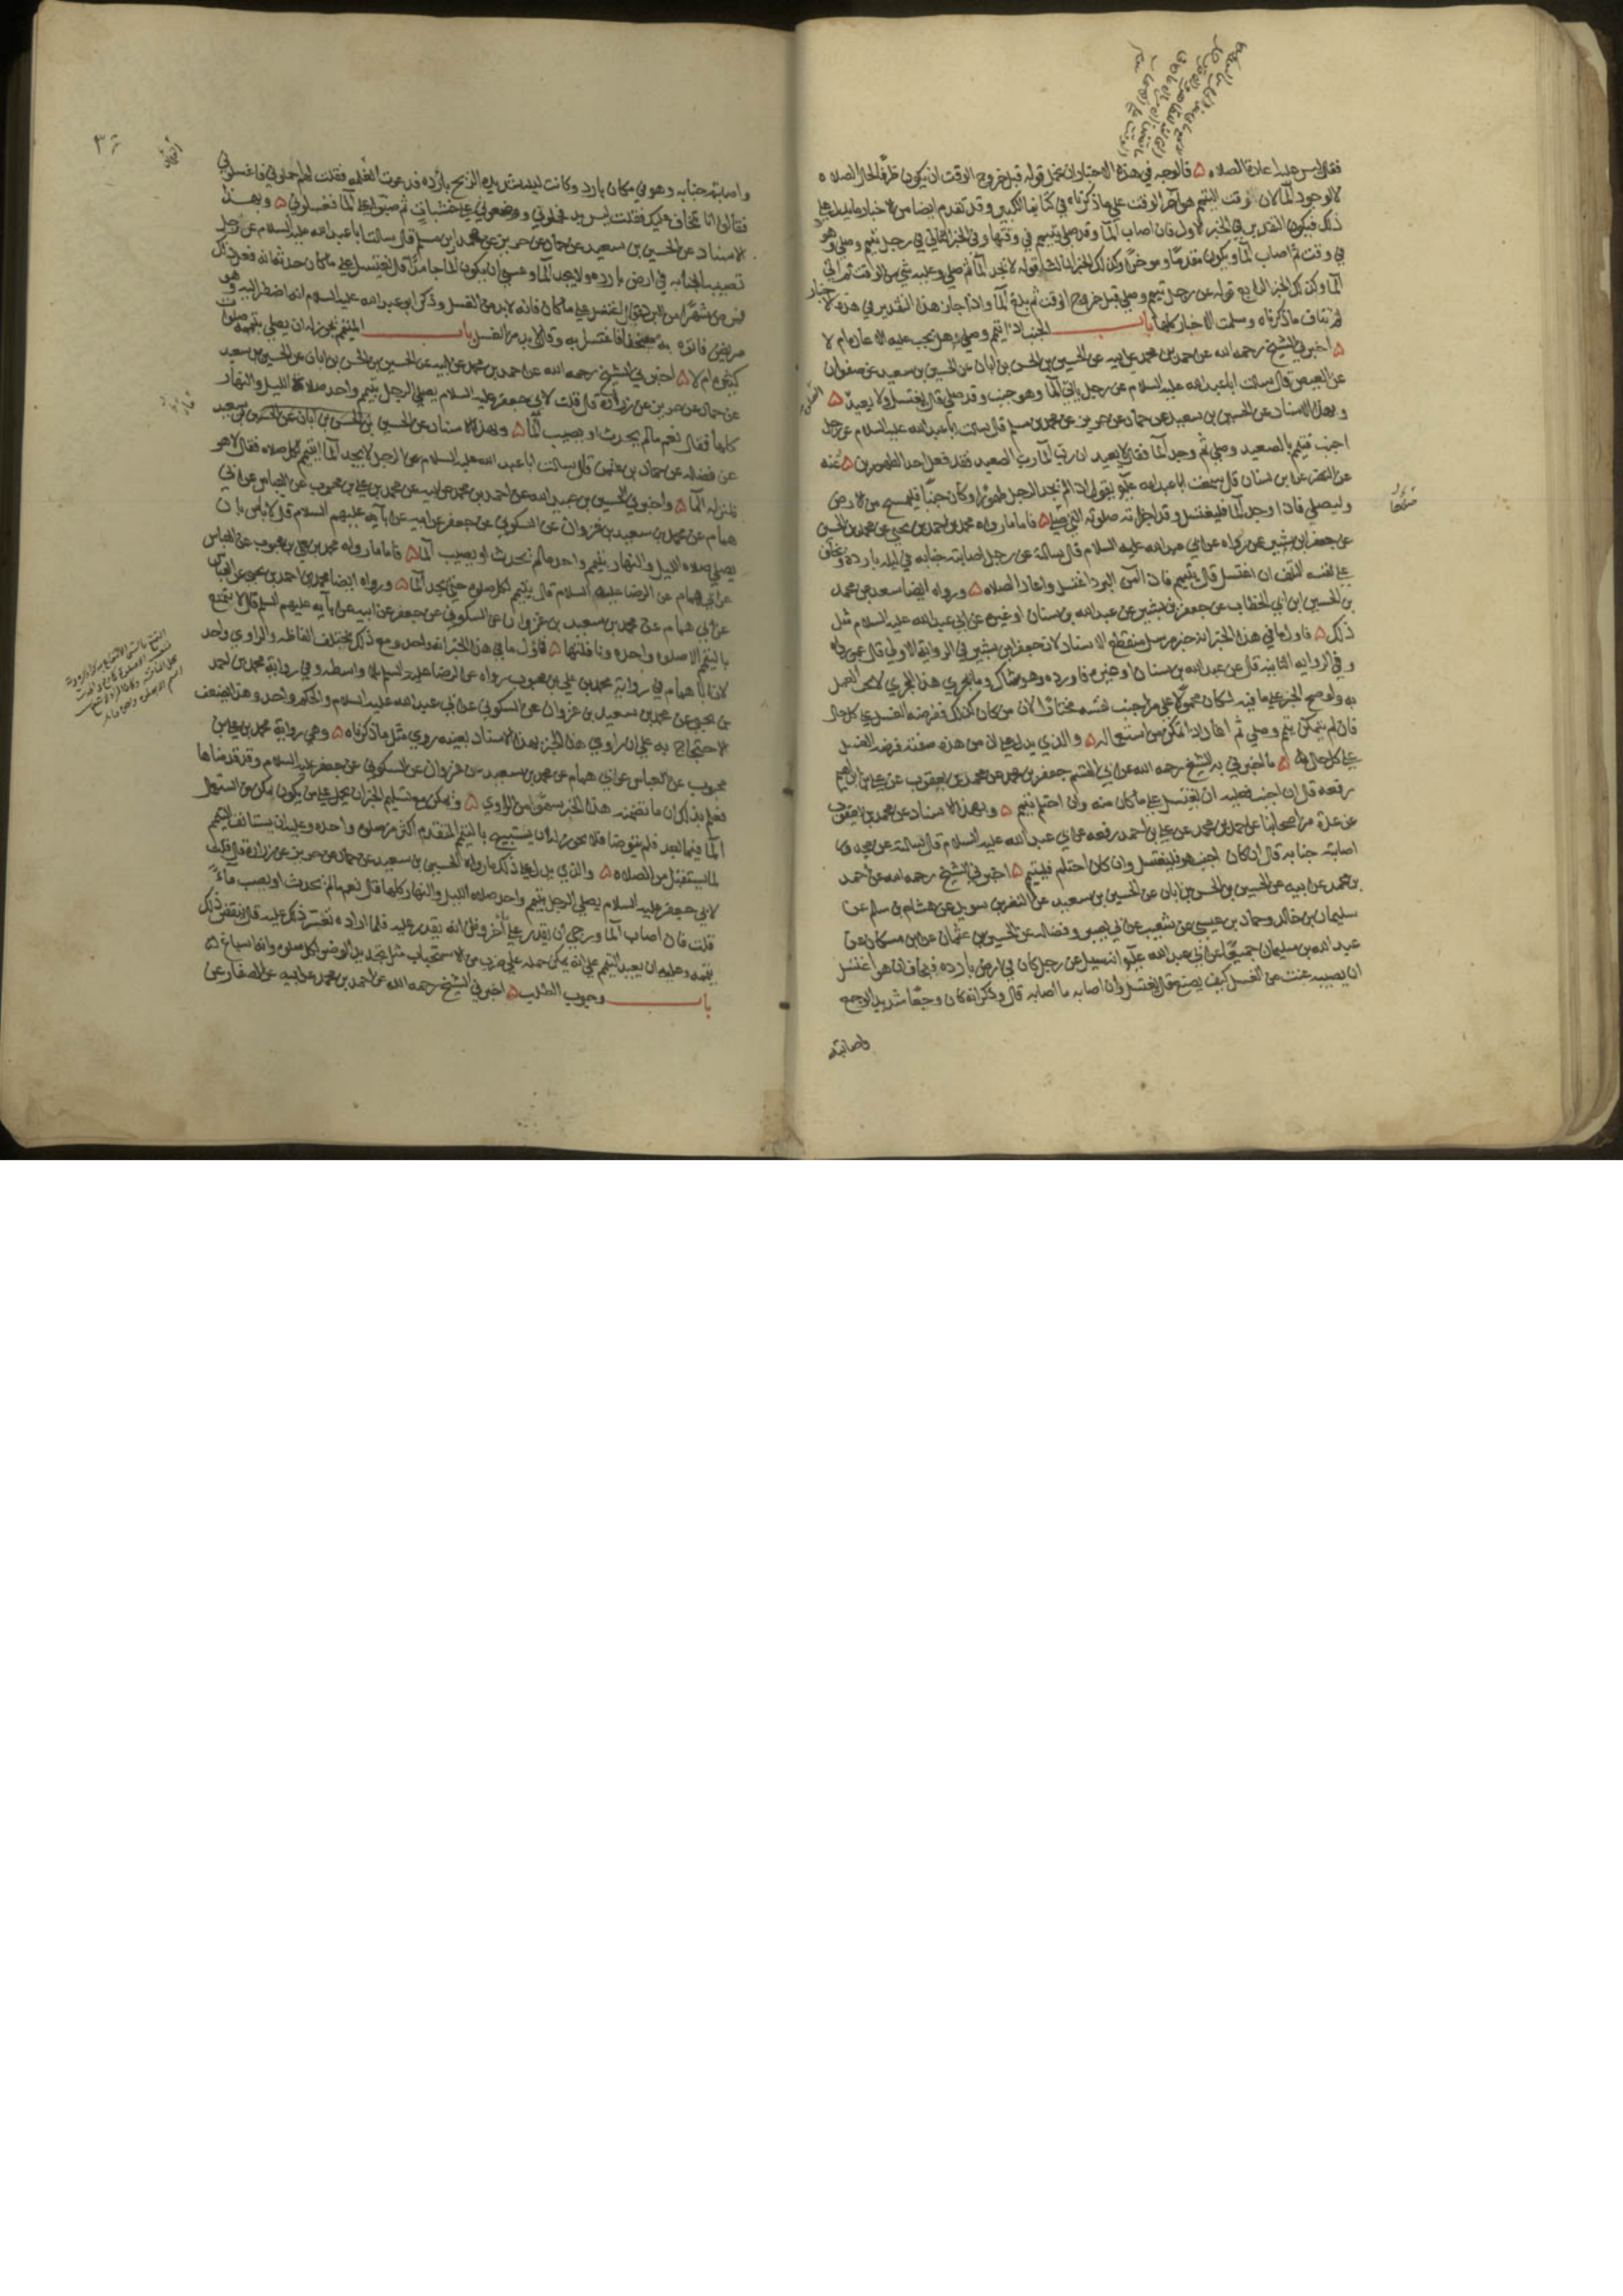 فقال ليس عليه اعادة الصلاه ۵ فالوجه في هذه الاخبار ان نحمل قوله قبل خروج الوقت ان يكون ظرفا لحال الصلاه
لا لوجود الما لان وقت التيمم هو آخر الوقت علي ما ذكرناه في كتابنا الكبير وقد تقدم ايضا من الاخبار ما يدل علي
ذلك فيكون التقدير في الخبر الاول فان اصاب الما وقد صلي بتيمم في وقتها وفي الخبر الثاني في رجل تيمم وصلي وهو
في وقت ثم اصاب الما ويكون مقدما وموخرا وكذلك الخبر الثالث قوله لا تجد الما ثم صلي وعليه شي من الوقت ثم اتي
الما وكذلك الخبر الرابع قوله عن رجل تيمم وصلي قبل خروج الوقت ثم بلغ الما واذا جاز هذا التقدير في هذه الاخبار
لم تناف ما ذكرناه وسلمت الاخبار كلها باب الجنب اذا تيمم وصلي هل تجب عليه الاعاده ام لا
۵ اخبرني الشيخ رحمه الله عن احمد بن محمد عن ابيه عن الحسين بن الحسن بن ابان عن الحسين بن سعيد عن صفوان
عن العيص قال سالت ابا عبد الله عليه السلام عن رجل ياتي الما وهو جنب وقد صلي قال يغتسل ولا يعيد ۵
وبهذا الاسناد عن الحسين بن سعيد عن حماد عن حريز عن محمد بن مسلم قال سالت ابا عبد الله عليه السلام عن رجل
اجنب فتيمم بالصعيد وصلي ثم وجد الما فقال لا يعيد ان رب الما رب الصعيد فقد فعل احد الطهورين ۵ عنه
عن النضر عن ابن سنان قال سمعت ابا عبد الله يقول اذا لم يجد الرجل طهورا وكان جنبا فليمسح من الارض
وليصلي فاذا وجد الما فليغتسل وقد اجزاته صلوته التي صلي ۵ فاما ما رواه محمد بن احمد بن يحيي عن محمد بن الحسين
عن جعفر بن بشير عن من رواه عن ابي عبد الله عليه السلام قال سالته عن رجل اصابته جنابه في ليله بارده ويخاف
علي نفسه التلف ان اغتسل قال يتيمم فاذا امن البرد اغتسل واعاد الصلاه ۵ ورواه ايضا سعد عن محمد
بن الحسين ابن ابي الخطاب عن جعفر بن بشير عن عبد الله بن سنان او غيره عن ابي عبد الله عليه السلام مثل
ذلك ۵ فاول ما في هذا الخبر انه خبر مرسل منقطع الاسناد لان جعفر بن بشير في الرواية الاولي قال عمن رواه
وفي الروايه الثانيه قال عن عبد الله بن سنان او غيره فاورده وهو شاك وما يجري هذا المجري لا يجب العمل
به ولو صح الخبر علي ما فيه لكان محمولا علي من اجنب نفسه مختارا لان من كان كذلك ففرضه الغسل علي كل حال
فان لم يتمكن تيمم وصلي ثم اعاد اذا تمكن من استعماله ۵ والذي يدل علي ان من هذه صفته فرضه الغسل
علي كل حال ۵ ما اخبرني به الشيخ رحمه الله عن ابي القسم جعفر بن محمد عن محمد بن يعقوب عن علي بن ابراهيم
رفعه قال ان اجنب فعليه ان يغتسل علي ما كان منه وان احتلم تيمم ۵ وبهذا الاسناد عن محمد بن يعقوب
عن عدة من اصحابنا عن احمد بن محمد عن علي بن احمد رفعه عن ابي عبد الله عليه السلام قال سالته عن مجدور
اصابته جنابه قال ان كان اجنب هو فليغتسل وان كان احتلم فليتيمم ۵ اخبرني الشيخ رحمه الله عن احمد
بن محمد عن ابيه عن الحسين بن الحسن بن ابان عن الحسين بن سعيد عن النضر بن سويد عن هشام بن سالم عن
سليمان بن خالد وحماد بن عيسي عن شعيب عن ابي بصير وفضاله عن الحسين بن عثمان عن ابن مسكان عن
عبد الله بن سليمان جميعا عن ابي عبد الله انه سيل عن رجل كان في ارض بارده فيخاف ان هو اغتسل
ان يصيبه عنت من الغسل كيف يصنع قال يغتسل وان اصابه ما اصابه قال وذكر انه كان وجعا شديد الوجع
واصابته
واصابته جنابه وهو في مكان بارد وكانت ليله شديده الريح بارده فدعوت الغلمه فقلت لهم احملوني فاغسلوني
فقالوا انا نخاف عليك فقلت ليس بد فحملوني ووضعوني علي خشبات ثم صبوا علي الما فغسلوني ۵ وبهذا
الاسناد عن الحسين بن سعيد عن حماد عن حريز عن محمد ابن مسلم قال سالت ابا عبد الله عليه السلام عن رجل
تصيبه الجنابه في ارض بارده ولا يجد الما وعسي ان يكون الما جامدا قال يغتسل علي ما كان حدثه انه فعل ذلك
فمرض شهرا من البرد فقال اغتسل علي ما كان فانه لا بد من الغسل وذكر ابو عبد الله عليه السلام انه اضطر اليه وهو
مريض فاتوه به مسخنا فاغتسل به وقال لا بد من الغسل باب المتيمم يجوز له ان يصلي بتيممه صلوات
كثيره ام لا ۵ اخبرني الشيخ رحمه الله عن احمد بن محمد عن ابيه عن الحسين بن الحسن بن ابان عن الحسين بن سعيد
عن حماد عن حريز عن زرارة قال قلت لابي جعفر عليه السلام يصلي الرجل بتيمم واحد صلاة الليل والنهار
كلها فقال نعم ما لم يحدث او يصيب الما ۵ وبهذا الاسناد عن الحسين بن الحسن بن ابان عن الحسين بن سعيد
عن فضاله عن حماد بن عثمن قال سالت ابا عبد الله عليه السلام عن الرجل لا يجد الما ايتيمم لكل صلاه فقال لا هو
بمنزله الما ۵ واخبرني الحسين بن عبيد الله عن احمد بن محمد عن ابيه عن محمد بن علي بن محبوب عن العباس عن ابي
همام عن محمد بن سعيد بن غزوان عن السكوني عن جعفر عن ابيه عن آبايه عليهم السلام قال لا باس بان
يصلي صلاه الليل والنهار بتيمم واحد ما لم يحدث او يصيب الما ۵ فاما ما رواه محمد بن علي بن محبوب عن العباس
عن ابي همام عن الرضا عليه السلام قال يتيمم لكل صلوه حتي يجد الما ۵ ورواه ايضا محمد بن احمد بن يحيي عن العباس
عن ابي همام عن محمد بن سعيد بن غزوان عن السكوني عن جعفر عن ابيه عن آبايه عليهم السلم قال لا يتمتع
بالتيمم الا صلوه واحده ونافلتها ۵ فاول ما في هذا الخبر انه واحد ومع ذلك تختلف الفاظه والراوي واحد
لان ابا همام في رواية محمد بن علي بن محبوب رواه عن الرضا عليه السلم بلا واسطه وفي رواية محمد بن احمد
بن يحيي عن محمد بن سعيد بن غزوان عن السكوني عن ابي عبد الله عليه السلام والحكم واحد وهذا يضعف
الاحتجاج به علي ان راوي هذا الخبر بهذا الاسناد بعينه روي مثل ما ذكرناه ۵ وهي رواية محمد بن علي بن
محبوب عن العباس عن ابي همام عن محمد بن سعيد بن غزوان عن السكوني عن جعفر عليه السلام وقد قدمناها
فعلم بذلك ان ما تضمنه هذا الخبر سهو من الراوي ۵ ويمكن مع تسليم الخبر ان يحمل علي من يكون تمكن من استعمال
الما فيما بعد فلم يتوضا فلا يجوز له ان يستبيح بالتيمم المتقدم اكثر من صلوه واحده وعليه ان يستانف التيمم
لما يستقبل من الصلاه ۵ والذي يدل علي ذلك ما رواه الحسين بن سعيد عن حماد عن حريز عن زرارة قال قلت
لابي جعفر عليه السلام يصلي الرجل بتيمم واحد صلاه الليل والنهار كلها قال نعم ما لم يحدث او يصب ماء
قلت فان اصاب الما ورجي ان يقدر علي ما آخر وظن انه يقدر عليه فلما اراده تعسر ذلك عليه قال ينقض ذلك
تيممه وعليه ان يعيد التيمم علي انه يمكن حمله علي ضرب من الاستحباب مثل تجديد الوضو لكل صلوه وانه اسباغ ۵
باب وجوب الطلب ۵ اخبرني الشيخ رحمه الله عن احمد بن محمد عن ابيه عن الصفار عن